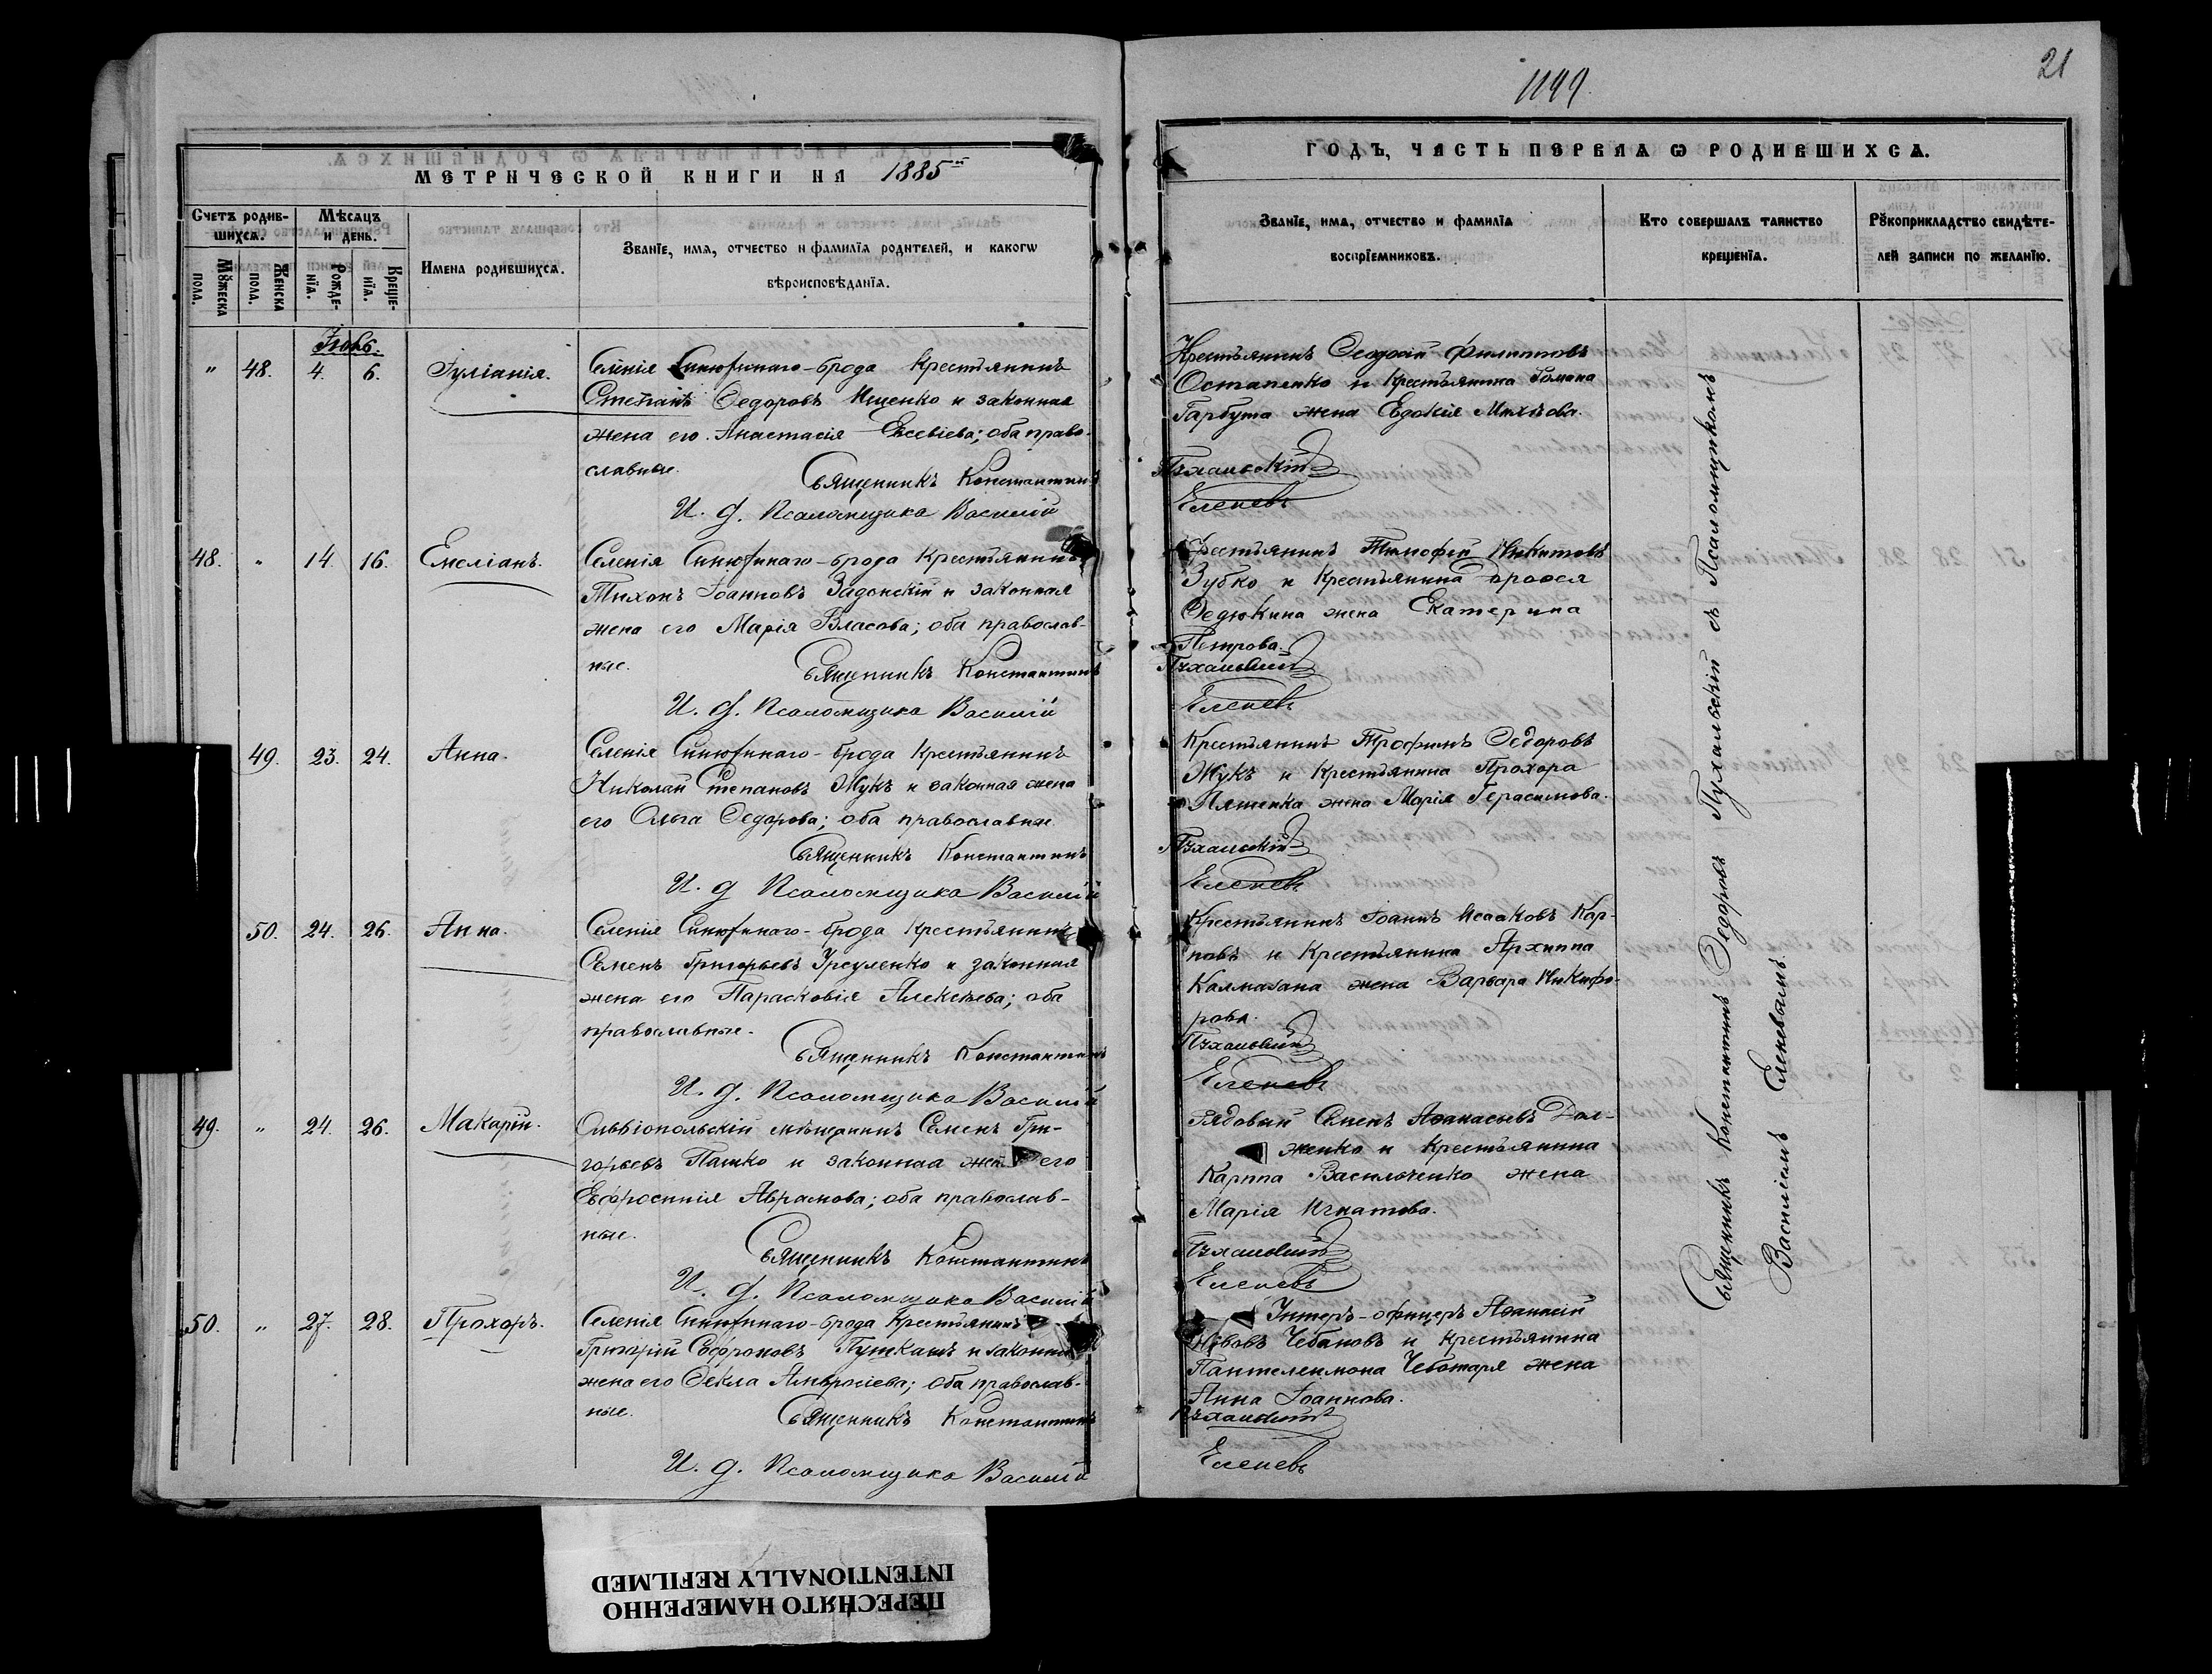 МЕТРИЧЕСКОЙ КНИГИ НА 1885й
Счетъ родив-
шихсѧ.
Мѣсѧцъ
и день.
Мꙋжеска
пола.
Женска
пола.
Рожде-
нїѧ.
Креще-
нїѧ.
Имена родившихсѧ.
Званїе, имѧ, отчество и фамилїѧ родителей, и какогѡ
вѣроисповѣданїѧ.
" 48. 4. 6. Іуліанія.
Селенія Синюхинаго-брода Крестьянинъ
Стефанъ Ѳедоровъ Ищенко и законная
жена его Анастасія Евсевіева; оба право-
славные.
Священникъ Константинъ
И. д. Псаломщика Василій
48. " 14. 16. Емеліанъ.
Селенія Синюхинаго-брода Крестьянинъ
Тихонъ Іоанновъ Задонскій и законная
жена его Марія Власова; оба православ-
ные.
Священникъ Константинъ
И. д. Псаломщика Василій
49. 23. 24. Анна.
Селенія Синюхинаго-брода Крестьянинъ
Николай Степановъ Жукъ и законная жена
его Ольга Ѳедорова; оба православные
Священникъ Константинъ
И. д. Псаломщика Василій
50. 24. 26. Анна.
Селенія Синюхинаго-брода Крестьянинъ
Семенъ Григорьевъ Урсуленко и законная
жена его Парасковія Алексѣева; оба
православные.
Священникъ Константинъ
И. д. Псаломщика Василій
49. " 24. 26. Макарій.
Ольвіопольскій мѣщанинъ Семенъ Гри-
горьевъ Пашко и законная жена его
Евфросинія Аврамова; оба православ-
ные.
Священникъ Константинъ
И. д. Псаломщика Василій
50. " 27. 28. Прохоръ.
Селенія Синюхинаго-брода Крестьянинъ
Григорій Софроновъ Пушкашъ и законная
жена его Ѳекла Амвросіева; оба православ-
ные.
Священникъ Константинъ
И. д. Псаломщика Василій
1199.
21
ГОДЪ, ЧАСТЬ ПЕРВАѦ Ѡ РОДИВШИХСѦ.
Званїе, имѧ, отчество и фамилїѧ
воспрїемниковъ.
Кто совершалъ таинство
крещенїѧ.
Рꙋкоприкладство свидѣте-
лей записи по желанїю.
Крестьянинъ Ѳеодосій Филипповъ
Остапенко и Крестьянина Романа
Гарбуза жена Евдокія
Пухальскій
Еленевъ
Крестьянинъ Тимофей Никитовъ
Зубко и Крестьянина
Ѳедюкина жена Екатерина
Петрова.
Пухальскій
Еленевъ
Крестьянинъ Трофимъ Ѳедоровъ
Жукъ и Крестьянина Прохора
жена Марія Герасимова.
Пухальскій
Еленевъ
Крестьянинъ Іоаннъ Исааковъ Кар-
повъ и Крестьянина Архиппа
Калмазана жена Варвара Никифо-
рова.
Пухальскій
Еленевъ
Рядовый Семенъ Аѳанасьевъ Дол-
женко и Крестьянина
Карпа Васильченко жена
Марія Игнатова.
Пухальскій
Еленевъ
Унтеръ-офицеръ Аѳанасій
Чебановъ и Крестьянина
Пантелеимона Чеботаря жена
Анна Іоаннова.
Пухальскій
Еленевъ
Священникъ Константинъ Ѳедоровъ Пухальскій съ Псаломщикомъ
Василіемъ Еленевымъ.
ПЕРЕСНЯТО НАМЕРЕННО
INTENTIONALLY REFILMED